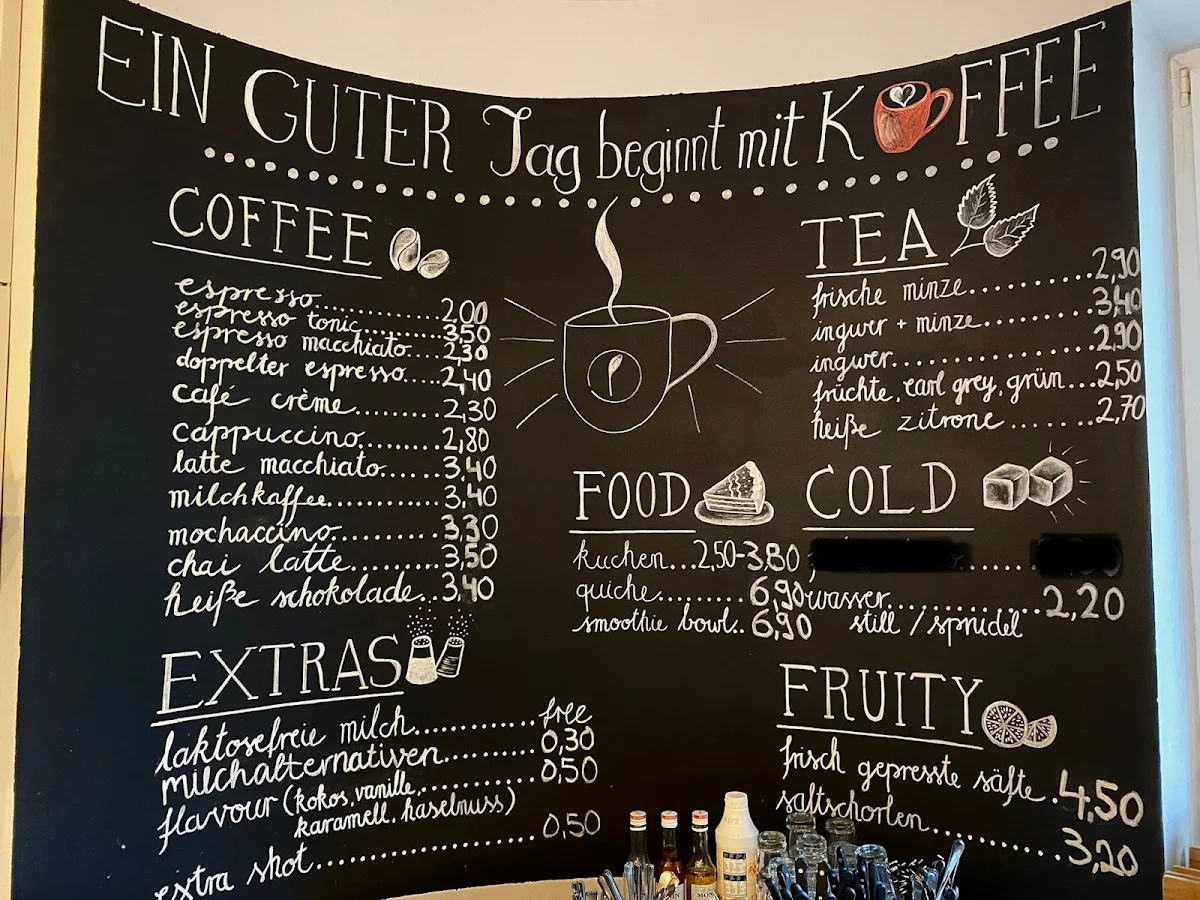 EIN GUTER Tag beginnt mit KFFEE
COFFEE
espresso..............2,00
espresso tonic..........3,50
espresso macchiato....2,30
doppelter espresso....2,40
café crème..........2,30
cappuccino.........2,80
latte macchiato......3,40
milchkaffee...........3,40
mochaccino..........3,30
chai latte..........3,50
heiße schokolade..3,40
EXTRAS
laktosefreie milch..........free
milchalternativen.........0,30
flavour (kokos, vanille,..........0,50
karamell, haselnuss)
extra shot....................0,50
FOOD
kuchen...2,50-3,80
quiche........6,90
smoothie bowl..6,90
TEA
frische minze..........2,90
ingwer + minze..........3,40
ingwer................2,90
früchte, earl grey, grün...2,50
heiße zitrone.......2,70
COLD
wasser..............2,20
still / sprudel
FRUITY
frisch gepresste säfte.4,50
saftschorlen..........3,20